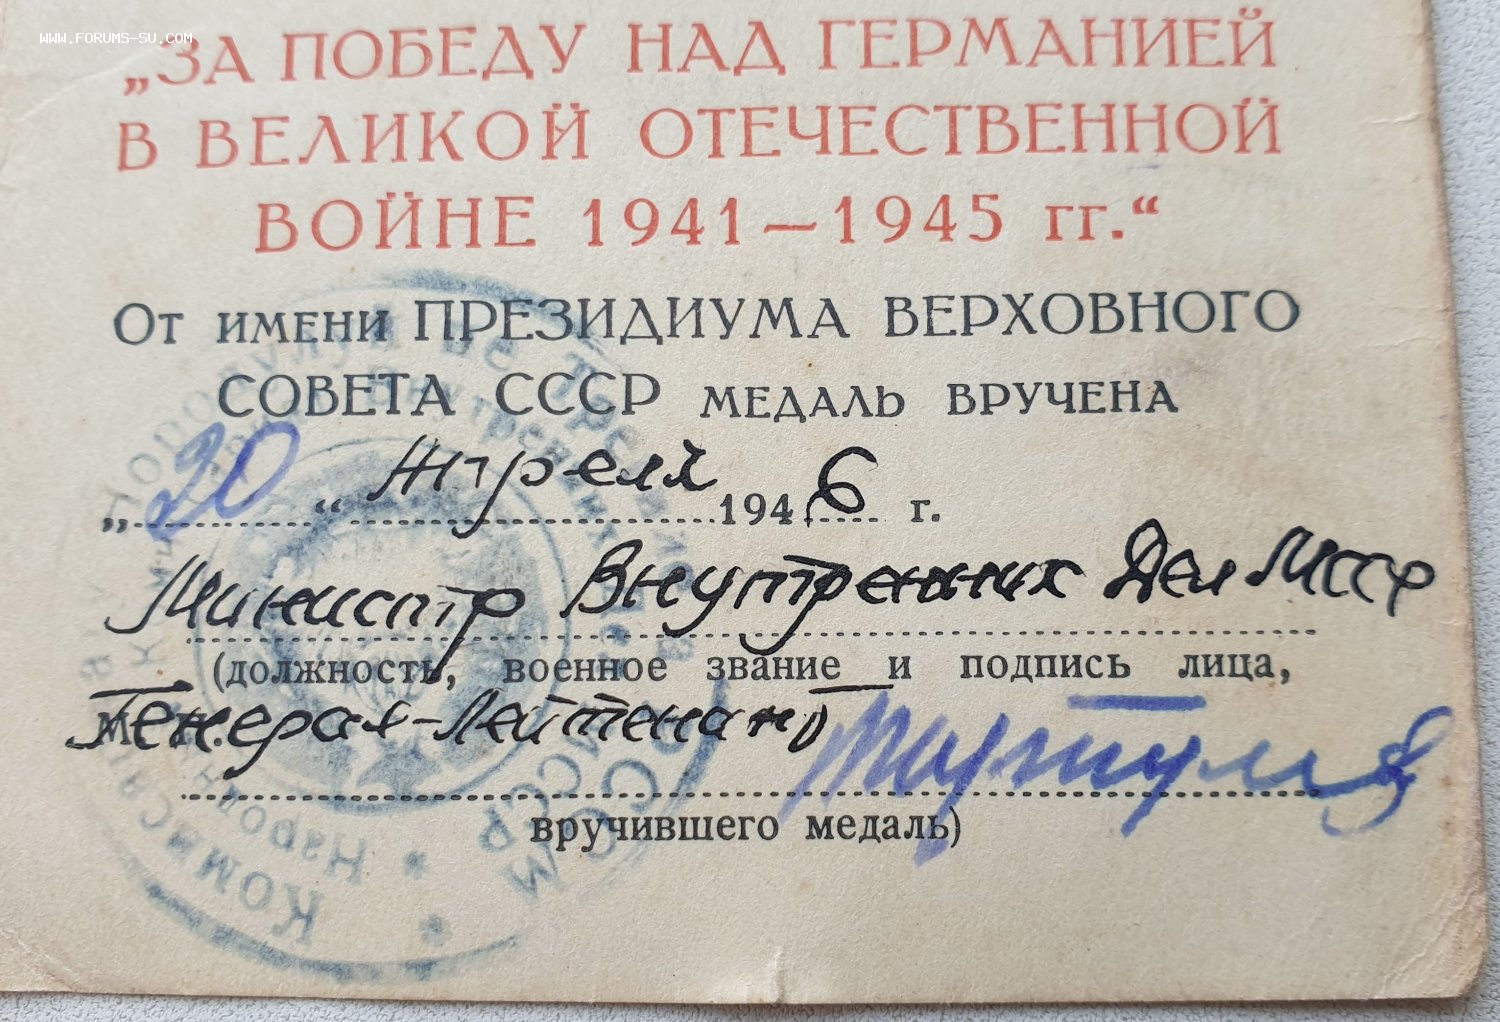 WWW.FORUMS-SU.COM
„ЗА ПОБЕДУ НАД ГЕРМАНИЕЙ
В ВЕЛИКОЙ ОТЕЧЕСТВЕННОЙ
ВОЙНЕ 1941—1945 гг.“
От имени ПРЕЗИДИУМА ВЕРХОВНОГО
СОВЕТА СССР МЕДАЛЬ ВРУЧЕНА
„20“ Апреля 1946 г.
Министр Внутренних Дел МССР
(должность, военное звание и подпись лица,
Генерал-Лейтенант
вручившего медаль)